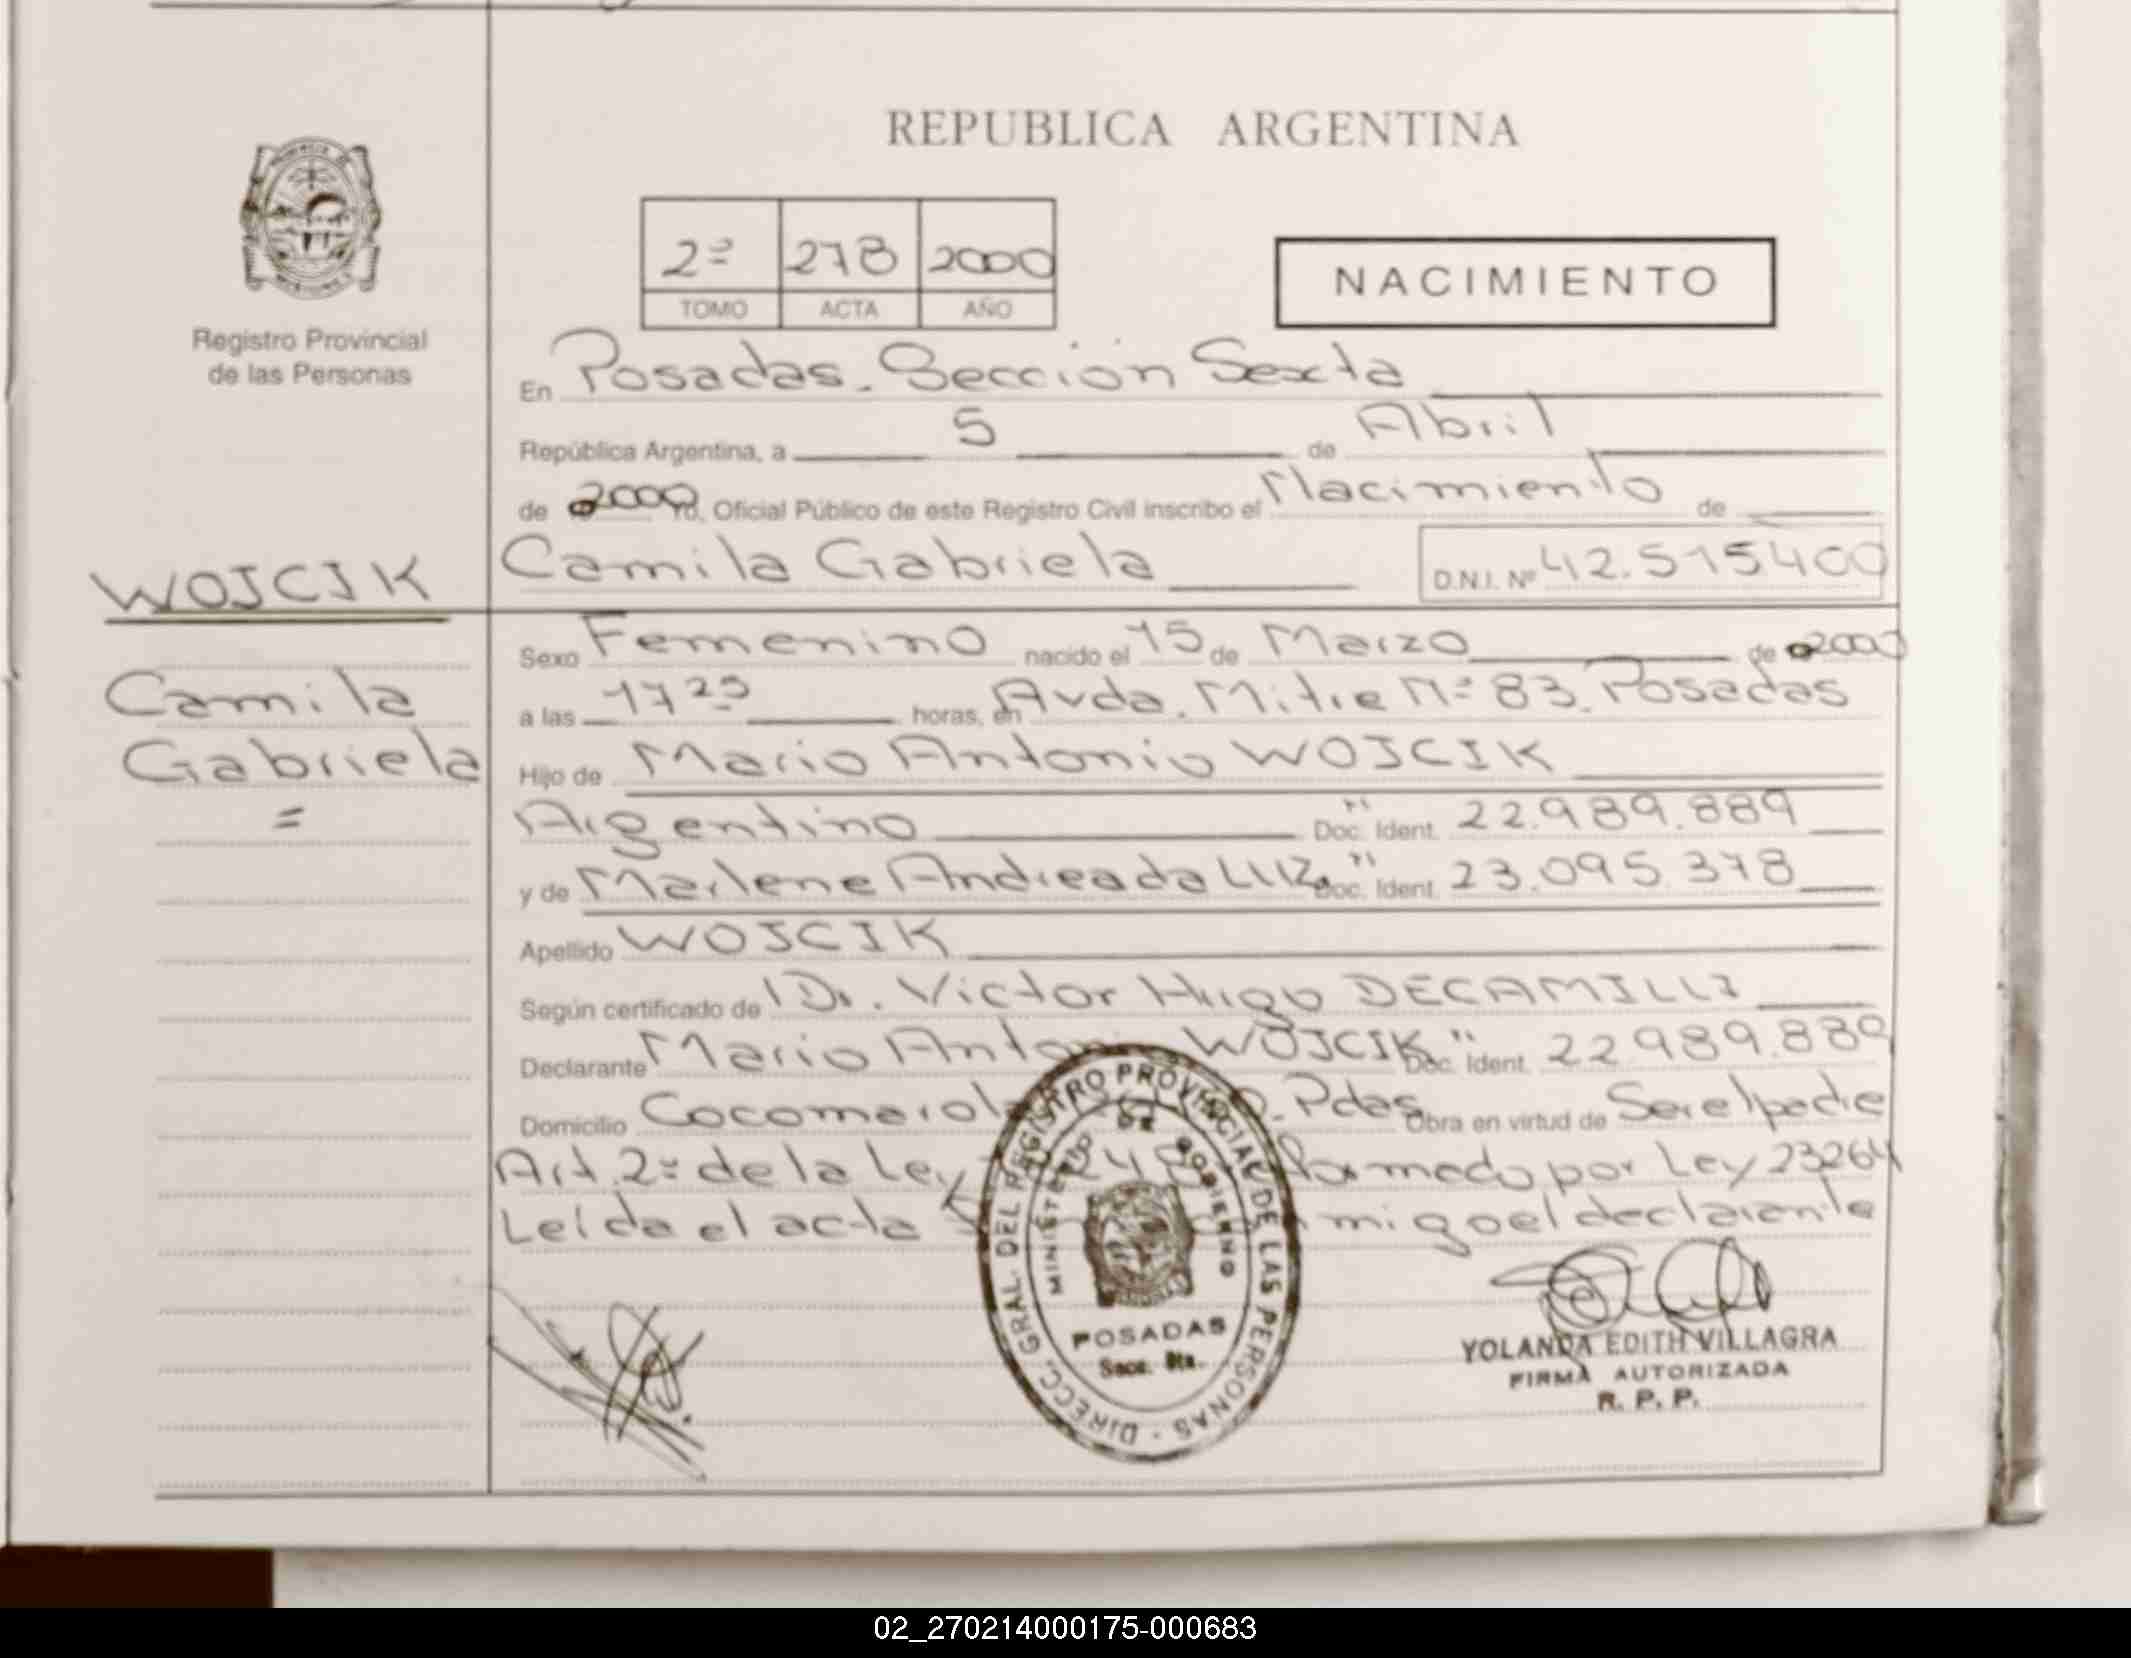 REPUBLICA ARGENTINA
2º 278 2000
TOMO ACTA AÑO
NACIMIENTO
Registro Provincial
de las Personas
En Posadas. Sección Sexta
República Argentina, a 5 de Abril
de 2000 Yo, Oficial Público de este Registro Civil inscribo el Nacimiento de
Camila Gabriela D.N.I. Nº 42.515400
WOJCIK
Camila
Gabriela
=
Sexo Femenino nacido el 15 de Marzo de 2000
a las 17 25 horas, en Avda. Mitre Nº 83. Posadas
Hijo de Mario Antonio WOJCIK
Argentino Doc. Ident. 22.989.889
y de Marlene Andrea da LUZ. " Doc. Ident. 23.095.378
Apellido WOJCIK
Según certificado de Dr. Victor Hugo DECAMILLI
Declarante Mario Antonio WOJCIK " Doc. Ident. 22.989.889
Domicilio Pdas Obra en virtud de Ser el padre
Art. 2º de la Ley por Ley 23264
Leída el acta migo el declarante
DIRECC. GRAL. DEL REGISTRO PROVINCIAL DE LAS PERSONAS
MINISTERIO DE GOBIERNO
POSADAS
Secc. 6ta.
YOLANDA EDITH VILLAGRA
FIRMA AUTORIZADA
R. P. P.
02_270214000175-000683